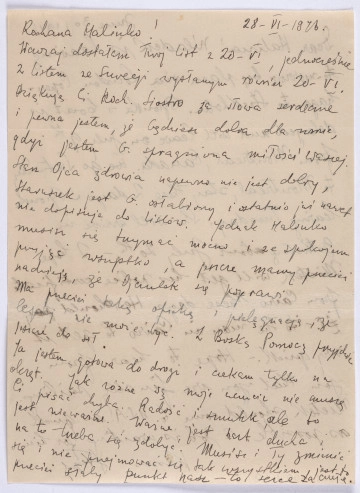 28-VI-1976.
Kochana Halinko!
Wczoraj dostałam Twój list z 20-VI, jednocześnie
z listem ze Szwecji wysłanym również 20-VI.
Dziękuję Ci Koch. Siostro za słowa serdeczne
i pewna jestem, że będziesz dobra dla mnie,
gdyż jestem b. spragniona miłości Waszej.
Stan Ojca zdrowia napewno nie jest dobry,
Staruszek jest b. osłabiony i ostatnio już nawet
nie dopisuje do listów. Jednak Halinko
musisz się trzymać mocno i ze spokojem
przyjąć wszystko, a jeszcze mamy przecież
nadzieję, że Ojczulek się poprawi.
Ma przecież taką opiekę i pielęgnację, że
lepszej nie może być. Z Boską Pomocą przyjdzie
jeszcze do sił.
Ja jestem gotowa do drogi i czekam tylko na
okręt. Jak różne są moje uczucia nie muszę
Ci pisać chyba. Radość i smutek ale to
jest nieważne. Ważne jest hart ducha i
na to trzeba się zdobyć. Musisz i Ty zmienić
się i nie przejmować się tak wszystkim, jest to
przecież stały punkt nasz - to serce